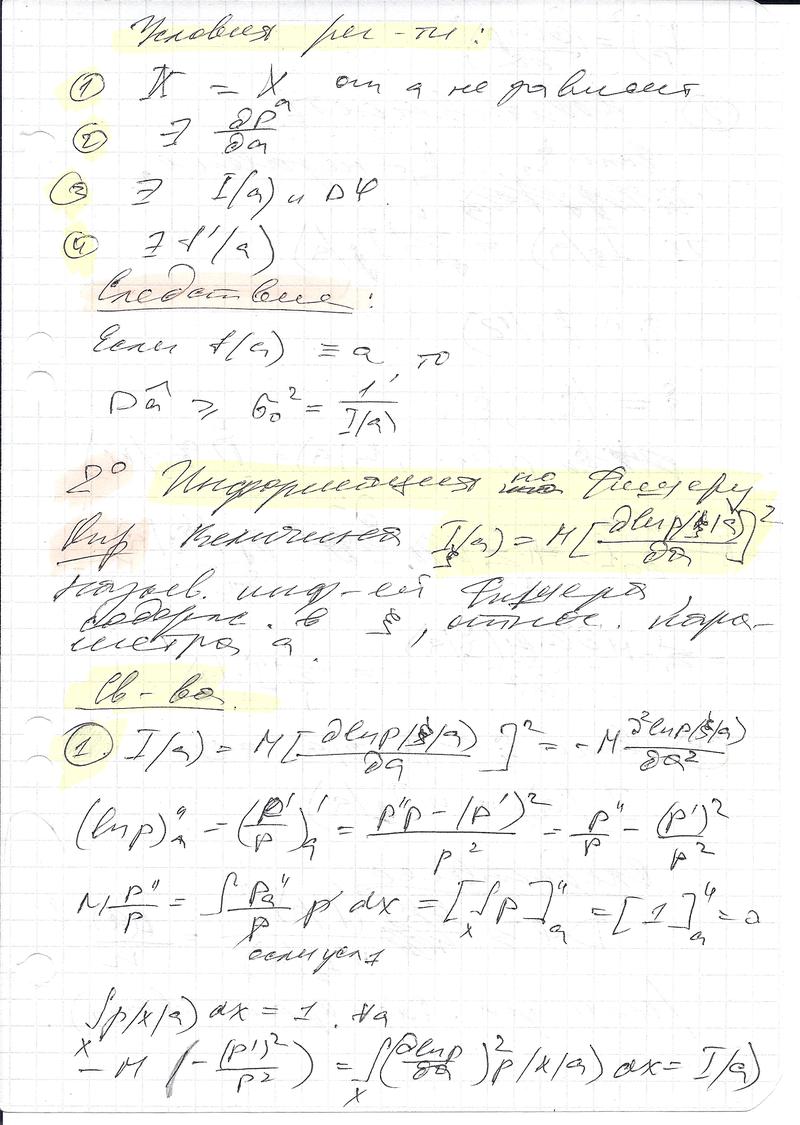 Условия рег-ти:
① X = X от a не зависит
② ∃ ∂P/∂a
③ ∃ I(a) и Dφ.
④ ∃ f'(a)
Следствие:
Если f(a) ≡ a, то
Dâ ≥ σ₀² = 1/I(a)
2° Информация по Фишеру
Опр Величина I_ξ(a) = M[∂lnp(ξ/a)/∂a]²
назыв. инф-ей Фишера,
содерж. в ξ, относ. пара-
метра a.
Св-ва
①. I(a) = M[∂lnp(ξ/a)/∂a]² = -M ∂²lnp(ξ/a)/∂a²
(lnp)''ₐ = (p'/p)'ₐ = (p''p - (p')²)/p² = p''/p - (p')²/p²
M p''/p = ∫ pₐ''/p p dx = [∫_X p]''ₐ = [1]''ₐ = 0
если усл 1
∫_X p(x/a) dx = 1 ∀a
-M(-(p')²/p²) = ∫_X (∂lnp/∂a)² p(x/a) dx = I(a)